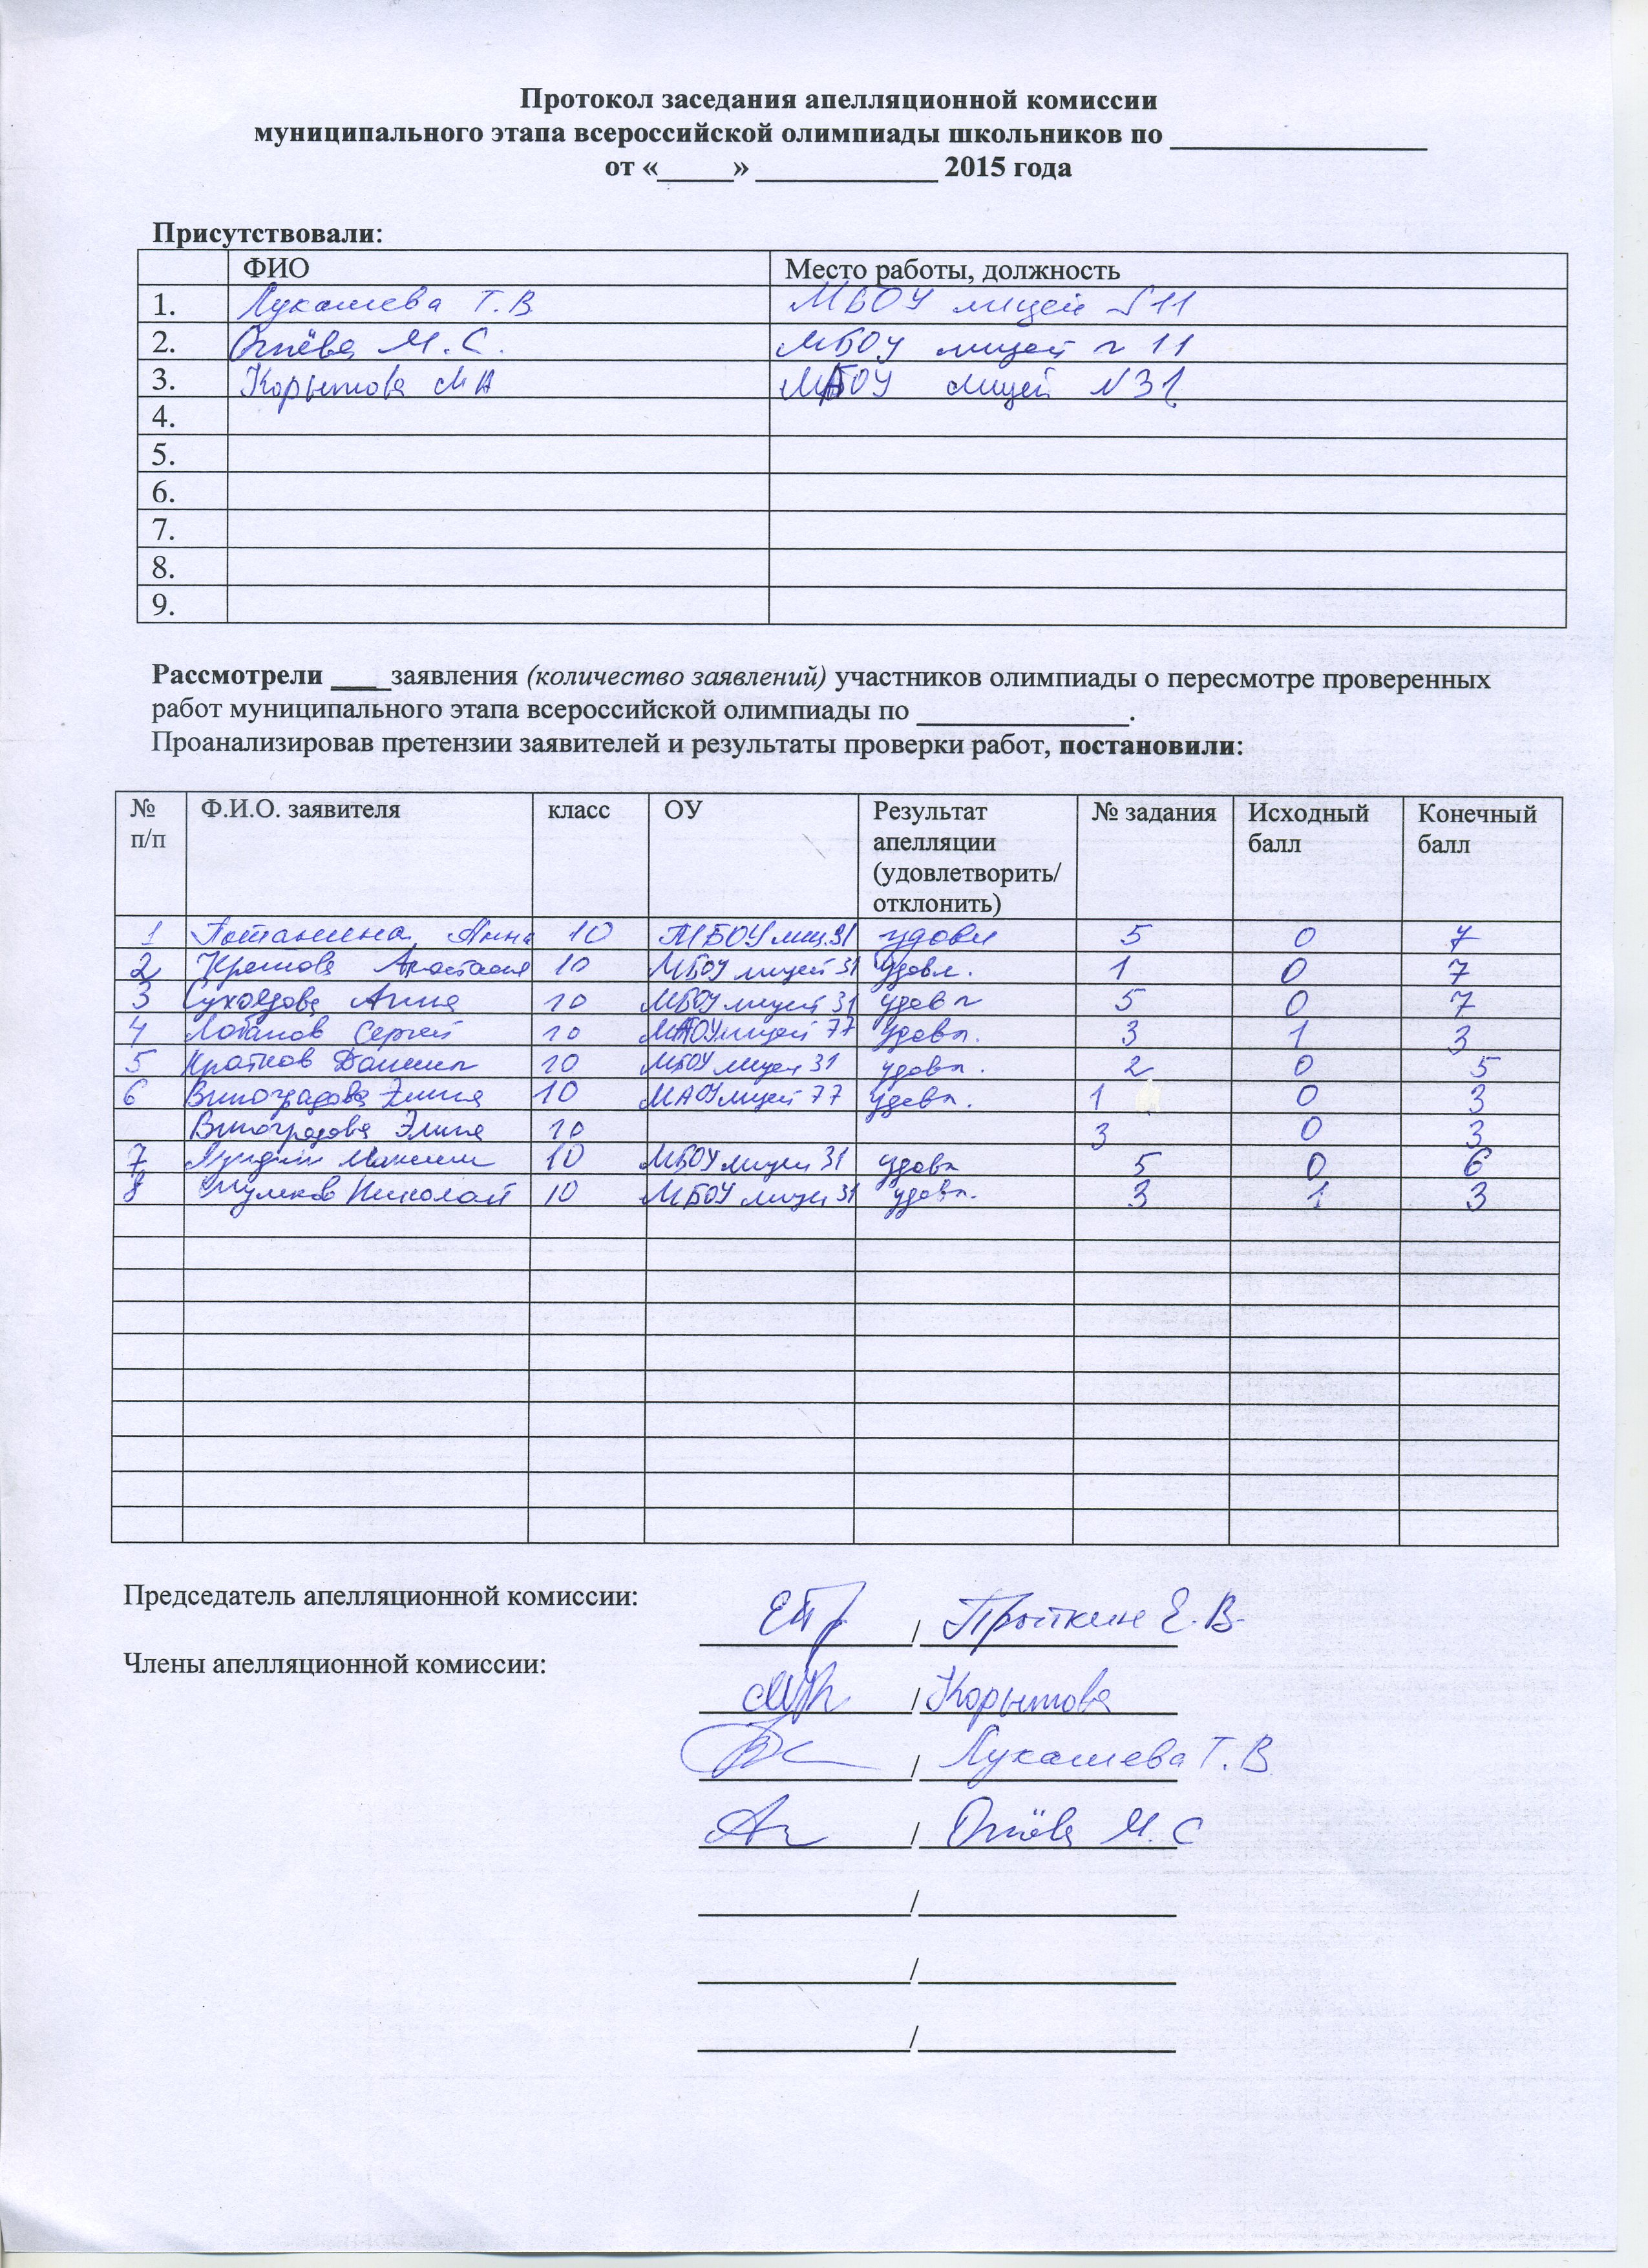 Протокол заседания апелляционной комиссии
муниципального этапа всероссийской олимпиады школьников по
от «_____» ____________ 2015 года
Присутствовали:
ФИО Место работы, должность
1. Лукашева Т.В МБОУ лицей №11
2. М.С. МБОУ лицей №11
3. Корытова МА МБОУ лицей №31
4.
5.
6.
7.
8.
9.
Рассмотрели ____заявления (количество заявлений) участников олимпиады о пересмотре проверенных
работ муниципального этапа всероссийской олимпиады по ______________.
Проанализировав претензии заявителей и результаты проверки работ, постановили:
№ п/п Ф.И.О. заявителя класс ОУ Результат апелляции (удовлетворить/ отклонить) № задания Исходный балл Конечный балл
1 Потанина Анна 10 МБОУ лиц.31 удовл 5 0 7
2 Анастасия 10 МБОУ лицей 31 удовл. 1 0 7
3 Анна 10 МБОУ лицей 31 удовл 5 0 7
4 Лобанов Сергей 10 МАОУ лицей 77 удовл. 3 1 3
5 Даниил 10 МБОУ лицей 31 удовл. 2 0 5
6 Виноградова Элина 10 МАОУ лицей 77 удовл. 1 0 3
Виноградова Элина 10 3 0 3
7 Максим 10 МБОУ лицей 31 удовл 5 0 6
8 Николай 10 МБОУ лицей 31 удовл. 3 1 3
Председатель апелляционной комиссии: / Е.В.
Члены апелляционной комиссии: / Корытова
/ Лукашева Т.В
/ М.С
/
/
/